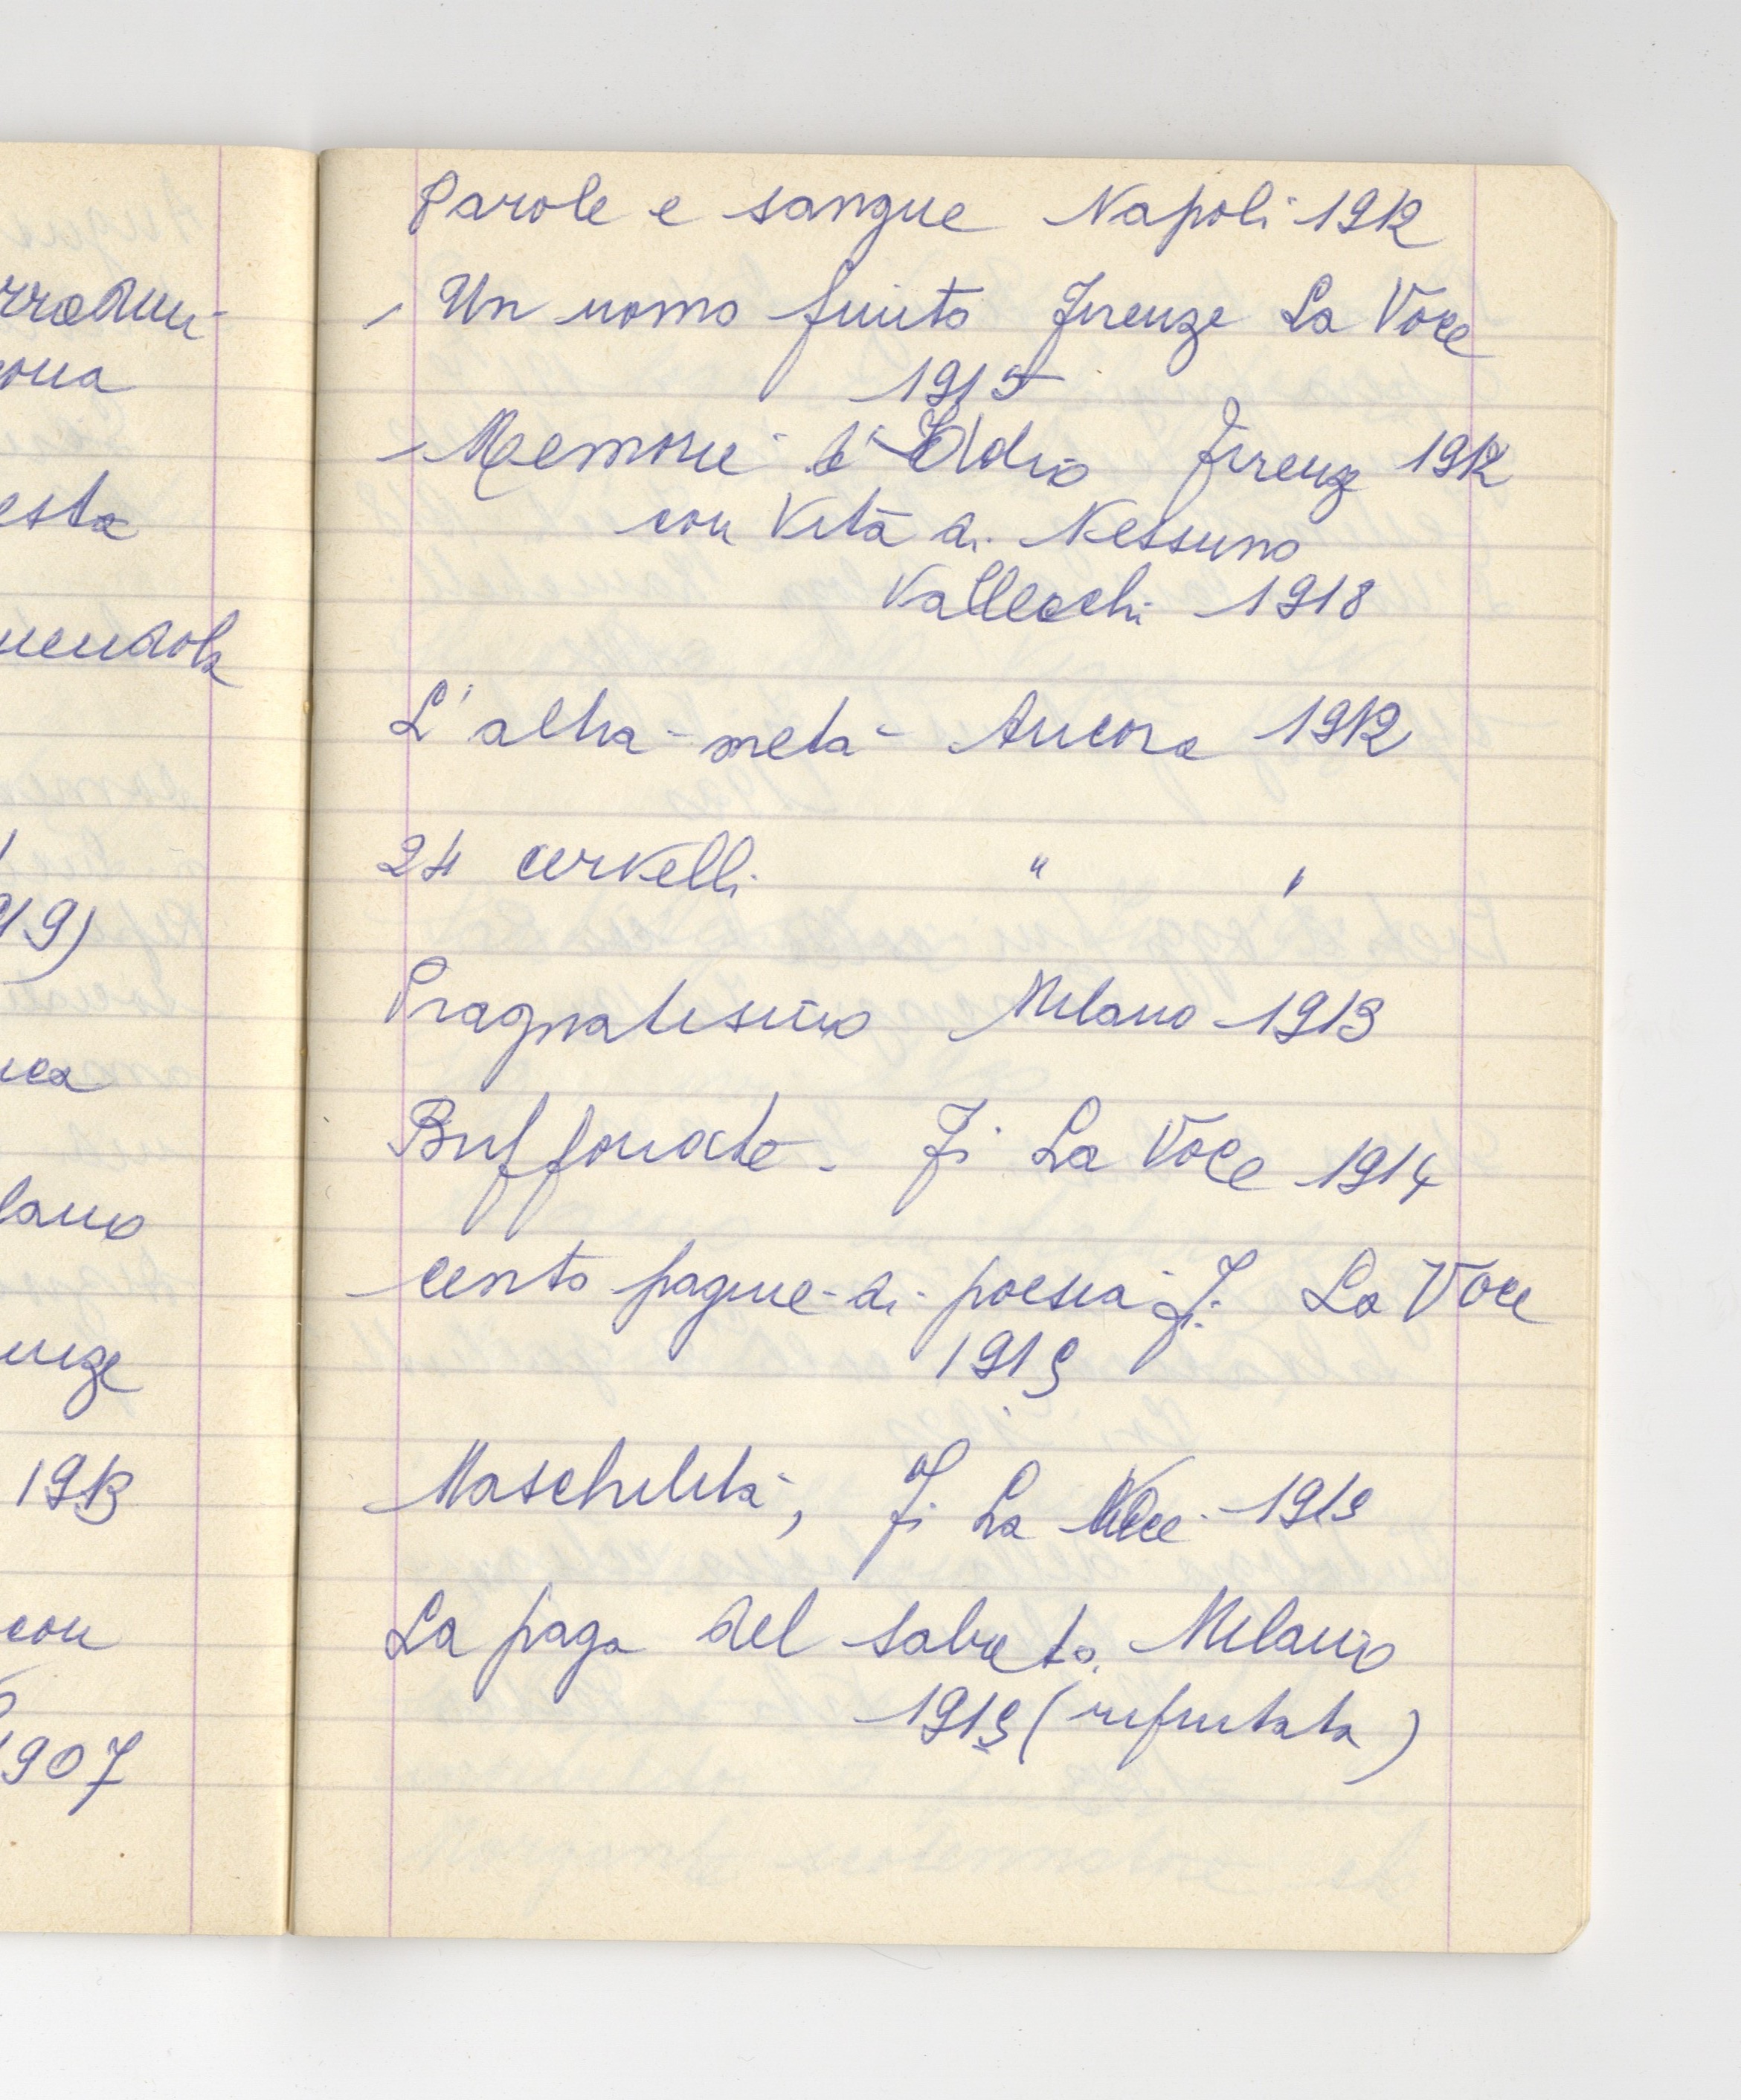 Parole e sangue Napoli 1912
Un uomo finito Firenze La Voce
1915
Memorie d'Iddio Firenze 1912
con Vita di Nessuno
Vallecchi 1918
L'altra metà Ancona 1912
24 cervelli " "
Pragmatismo Milano 1913
Buffonate - Fi La Voce 1914
cento pagine di poesia Fi. La Voce
1915
Maschilità, Fi La Voce 1915
La paga del sabato. Milano
1915 (rifiutata)
esta
con
1913
1907